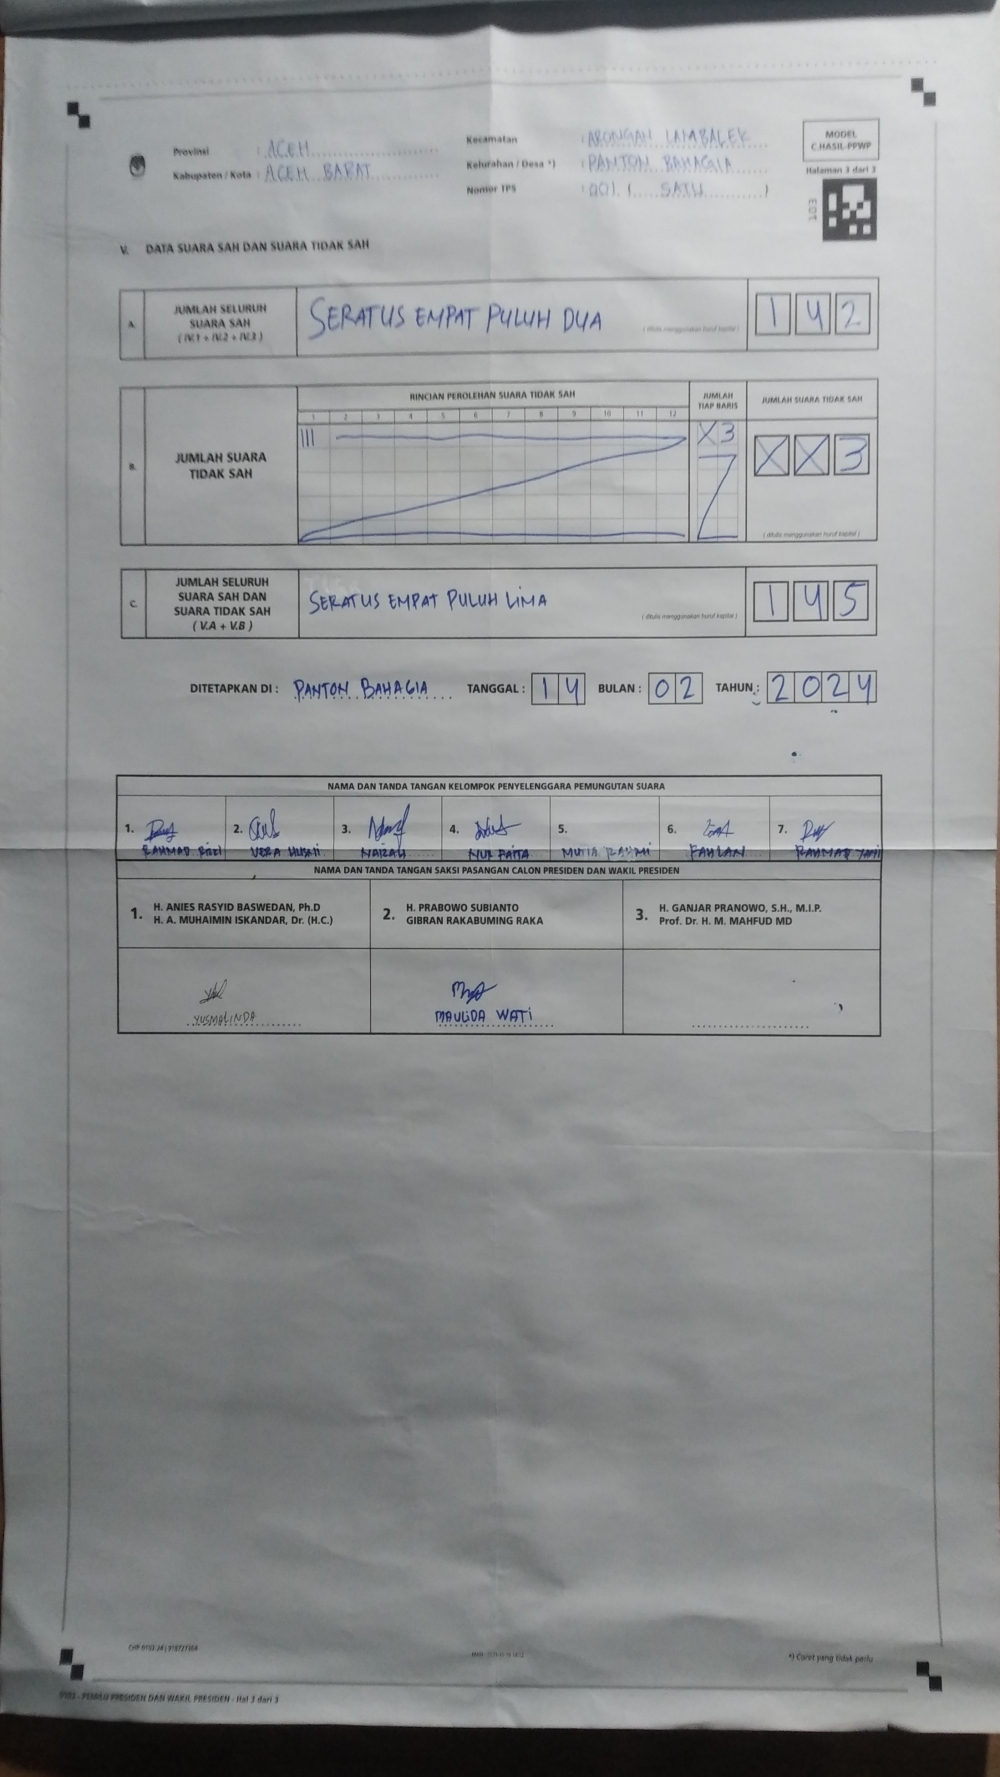 Provinsi : ACEH
Kabupaten / Kota : ACEH BARAT
Kecamatan : ARONGAN LAMBALEK
Kelurahan / Desa *) : PANTON BAHAGIA
Nomor TPS : 001 ( SATU )
MODEL
C.HASIL-PPWP
Halaman 3 dari 3
103
V. DATA SUARA SAH DAN SUARA TIDAK SAH
A. JUMLAH SELURUH
SUARA SAH
( IV.1 + IV.2 + IV.3 )
SERATUS EMPAT PULUH DUA
( ditulis menggunakan huruf kapital )
1 4 2
B. JUMLAH SUARA
TIDAK SAH
RINCIAN PEROLEHAN SUARA TIDAK SAH
1 2 3 4 5 6 7 8 9 10 11 12
III
JUMLAH
TIAP BARIS
X3
JUMLAH SUARA TIDAK SAH
X X 3
( ditulis menggunakan huruf kapital )
C. JUMLAH SELURUH
SUARA SAH DAN
SUARA TIDAK SAH
( V.A + V.B )
SERATUS EMPAT PULUH LIMA
( ditulis menggunakan huruf kapital )
1 4 5
DITETAPKAN DI : PANTON BAHAGIA TANGGAL : 14 BULAN : 02 TAHUN : 2024
NAMA DAN TANDA TANGAN KELOMPOK PENYELENGGARA PEMUNGUTAN SUARA
1. 2. 3. 4. 5. 6. 7.
RAHMAD VERA NUR MUTIA FAHLAN RAHMAT
NAMA DAN TANDA TANGAN SAKSI PASANGAN CALON PRESIDEN DAN WAKIL PRESIDEN
1. H. ANIES RASYID BASWEDAN, Ph.D
H. A. MUHAIMIN ISKANDAR, Dr. (H.C.)
2. H. PRABOWO SUBIANTO
GIBRAN RAKABUMING RAKA
3. H. GANJAR PRANOWO, S.H., M.I.P.
Prof. Dr. H. M. MAHFUD MD
YUSMALINDA
MAULIDA WATI
*) Coret yang tidak perlu
PEMILU PRESIDEN DAN WAKIL PRESIDEN - Hal 3 dari 3